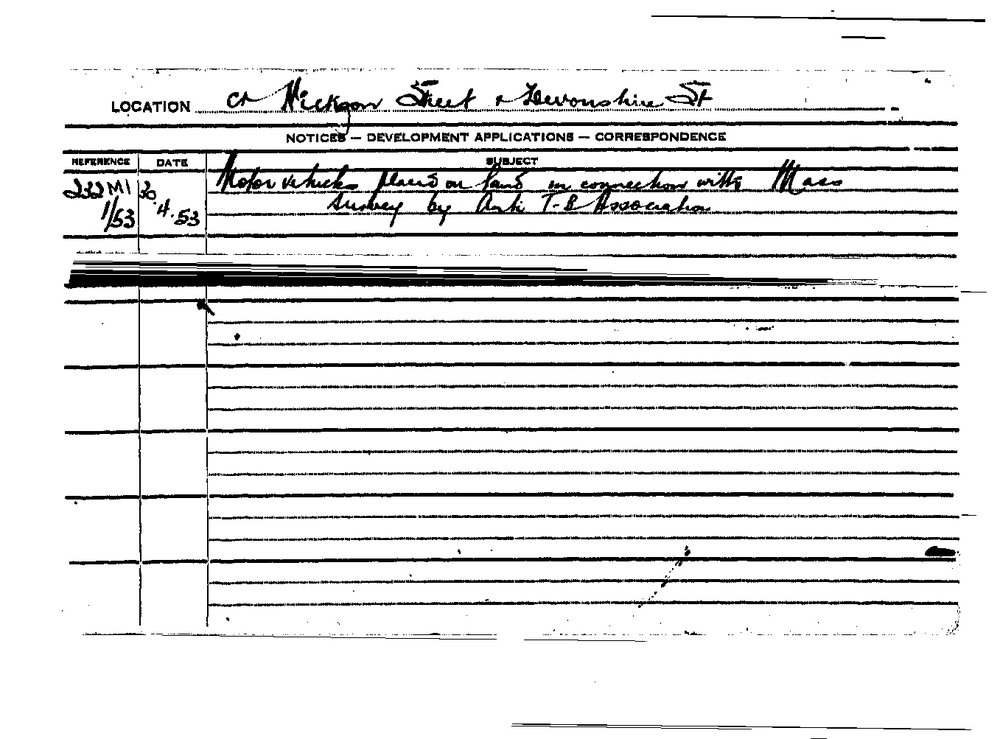 LOCATION cr Hickson Street & Devonshire St
NOTICES — DEVELOPMENT APPLICATIONS — CORRESPONDENCE
REFERENCE DATE SUBJECT
222 M1 30 Motor vehicles placed on land in connection with Mass
1/53 .4.53 Survey by Anti T-B Association